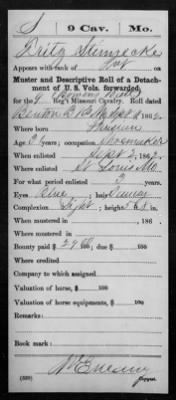 S | 9 Cav. | Mo.
Dritz Steinnecke
Appears with rank of Pvt
Muster and Descriptive Roll of a Detach-
ment of U. S. Vols. forwarded
for the 9 (Bowens Batt) Reg't Missouri Cavalry. Roll dated
Benton Bks Mo Sept 186 2.
Where born
Age years; occupation Shoemaker
When enlisted Sept 2, 186 2.
Where enlisted St Louis Mo.
For what period enlisted 3 years.
Eyes Blue; hair
Complexion Light; height 5 ft. in.
When mustered in , 186 .
Where mustered in
Bounty paid $ ; due $ 100
Where credited
Company to which assigned
Valuation of horse, $ 100
Valuation of horse equipments, $ 100
Remarks:
Book mark:
(339) Copyist.